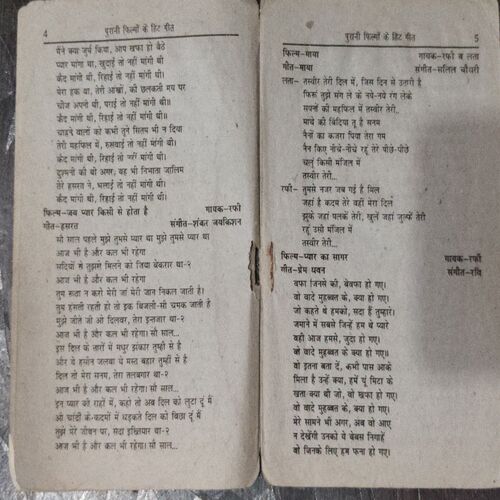 4 पुरानी फिल्मों के हिट गीत
मैंने क्या जुर्म किया, आप खफा हो बैठे
प्यार मांगा था, खुदाई तो नहीं मांगी थी।
कैद मांगी थी, रिहाई तो नहीं मांगी थी।
मेरा हक था, तेरी आंखों, की छलकती मय पर
चीज अपनी थी, पराई तो नहीं मांगी थी।
कैद मांगी थी, रिहाई तो नहीं मांगी थी॥
चाहने वालों को कभी तूने सितम भी न दिया
तेरी महफिल में, रुसवाई तो नहीं मांगी थी।
कैद मांगी थी, रिहाई तो नहीं मांगी थी।
दुश्मनी की थी अगर, वह भी निभाता जालिम
तेरे हसरत ने, भलाई तो नहीं मांगी थी।
कैद मांगी थी, रिहाई तो नहीं मांगी थी।
फिल्म-जब प्यार किसी से होता है गायक-रफी
गीत-हसरत संगीत-शंकर जयकिशन
सौ साल पहले मुझे तुमसे प्यार था मुझे तुमसे प्यार था
आज भी है और कल भी रहेगा
सदियों से तुझसे मिलने को जिया बेकरार था-२
आज भी है और कल भी रहेगा
तुम रूठा न करो मेरी जां मेरी जान निकल जाती है।
तुम हंसती रहती हो तो इक बिजली-सी चमक जाती है
मुझे जीते जी ओ दिलवर, तेरा इन्तजार था-२
आज भी है और कल भी रहेगा। सौ साल...
इस दिल के तारों में मधुर झंकार तुम्हीं से है
और ये हसीन जलवा ये मस्त बहार तुम्हीं से है
दिल तो मेरा सनम, तेरा तलबगार था-२
आज भी है और कल भी रहेगा। सौ साल...
इन प्यार की राहों में, कहो तो अब दिल को लुटा दूं मैं
ओ चांदी के-कदमों में धड़कते दिल को बिछा दूं मैं
तुझे मेरे जीवन पर, सदा इख्तियार था-२
आज भी है और कल भी रहेगा। सौ साल...
पुरानी फिल्मों के हिट गीत 5
फिल्म-माया गायक-रफी व लता
गीत-माया संगीत-सलिल चौधरी
लता- तस्वीर तेरी दिल में, जिस दिन से उतारी है
फिरूं तुझे संग ले के नये-नये रंग लेके
सपनों की महफिल में तस्वीर तेरी..
माथे की बिंदिया तू है सनम
नैनों का कजरा पिया तेरा गम
नैन किए नीचे-नीचे रहूं तेरे पीछे-पीछे
चलूं किसी मंजिल में
तस्वीर तेरी...
रफी- तुमसे नजर जब गई है मिल
जहां है कदम तेरे वहीं मेरा दिल
झुके जहां पलकें तेरी, खुलें जहां जुल्फें तेरी
रहूं उसी मंजिल में
तस्वीर तेरी...
फिल्म-प्यार का सागर गायक-रफी
गीत-प्रेम धवन संगीत-रवि
वफा जिनसे की, बेवफा हो गए।
वो वादे मुहब्बत के, क्या हो गए।
जो कहते थे हमको, सदा हैं तुम्हारे।
जमाने में सबसे जिन्हें हम थे प्यारे
वही आज हमसे, जुदा हो गए।
वो वादे मुहब्बत के क्या हो गए॥
वो इतना बता दें, कभी पास आके
मिला है उन्हें क्या, हमें यूं मिटा के
खता क्या थी जो, वो खफा हो गए।
वो वादे मुहब्बत के, क्या हो गए।
मेरे सामने भी अगर, अब वो आए
न देखेगी उनको ये बेबस निगाहें
वो जिनके लिए हम फना हो गए।